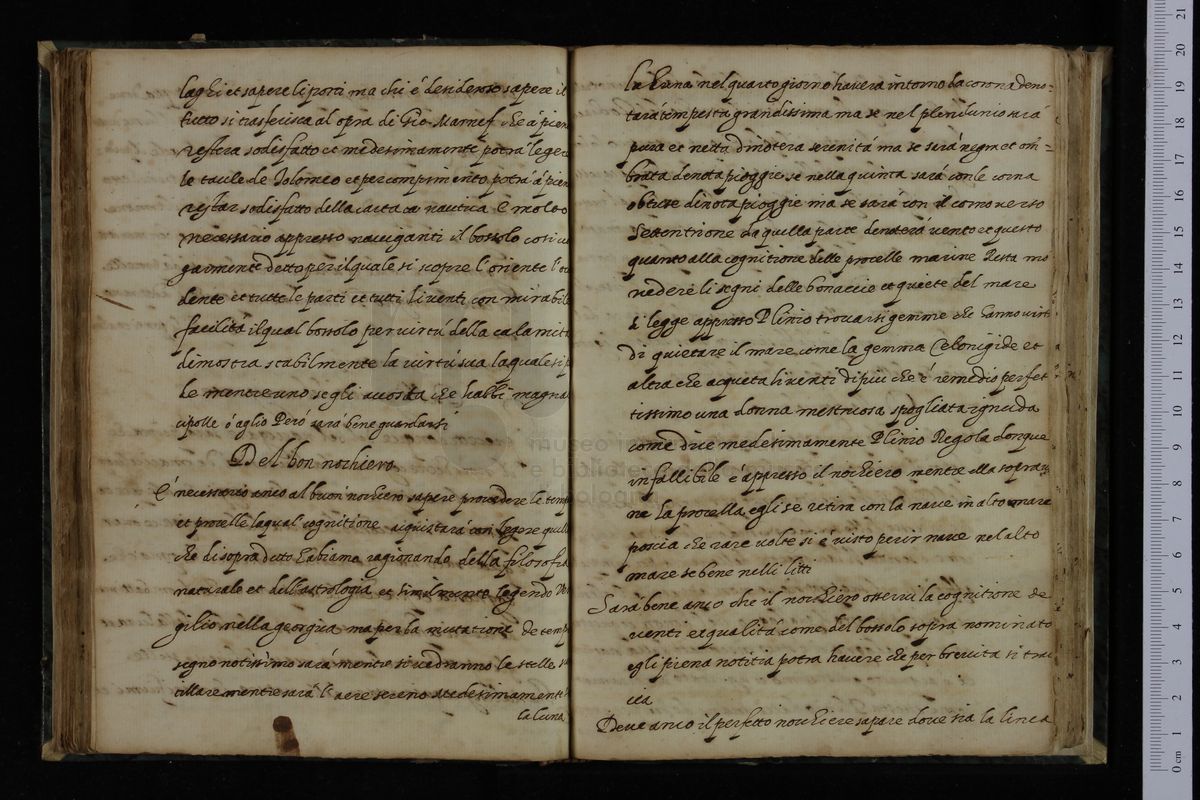 laghi et sapere li porti ma chi é desideroso sapere il
tutto si trasferisca al opra di Gio. Marnef che a pien
restera sodisfatto et medesimamente potrá legere
le taule de Tolomeo et per compimento potrá á pien
restar sodisfatto della carta ca nautica. E molto
necessario appresso naviganti il bossolo cosi vul
garmente detto per il quale si scopre l'oriente l'occi
dente et tutte le parti et tutti li venti con mirabile
facilitá il qual bossolo per virtú della calamita
dimostra stabilmente la virtú sua la quale si p
de mentre uno se gli accosta che habbi magna
cipolle ó aglio Peró sará bene guardarsi
Del bon nochiero
É necessario anco al buon nochiero sapere provedere le temp
et procelle la qual cognitione acquistará con legere quello
che di sopra detto habiamo ragionando della filosofia
naturale et dell'astrologia et similmente legendo Vir
gilio nella georgica ma per la mutatione de temp
segno notissimo sará mentre si vedranno le stelle
tillare mentre sará l'aere sereno medesimamente
la luna
la luna nel quarto giorno havera intorno la corona deno=
tará tempesta grandissima ma se nel plenilunio sará
pura et netta dinotera serenitá ma se será negra et om=
brata denota pioggie se nella quinta sará con le corna
obtuse dinota pioggie ma se sará con il corno verso
Settentrione da quella parte denoterá vento et questo
quanto alla cognitione delle procelle marine Resta mó
vedere li segni delle bonaccie et quiete del mare
Si legge appresso Plinio trovarsi gemme che hanno virtú
di quietare il mare come la gemma Celonigide et
altra che acqueta li venti di piu che é remedio perfet
tissimo una donna mestruosa spogliata ignuda
come dice medesimamente Plinio Regola donque
infallibile é appresso il nochiero mentre ella soprav
ne la procella egli se retira con la nave in alto mare
poscia che rare volte si é visto perir nave nel alto
mare se bene nelli litti
Sará bene anco che il nochiero osservi la cognitione de
venti et qualitá come del bossolo sopra nominato
egli piena notitia potra havere che per brevita si tra
cia
Deve anco il perfetto nochiere sapere dove sia la linea